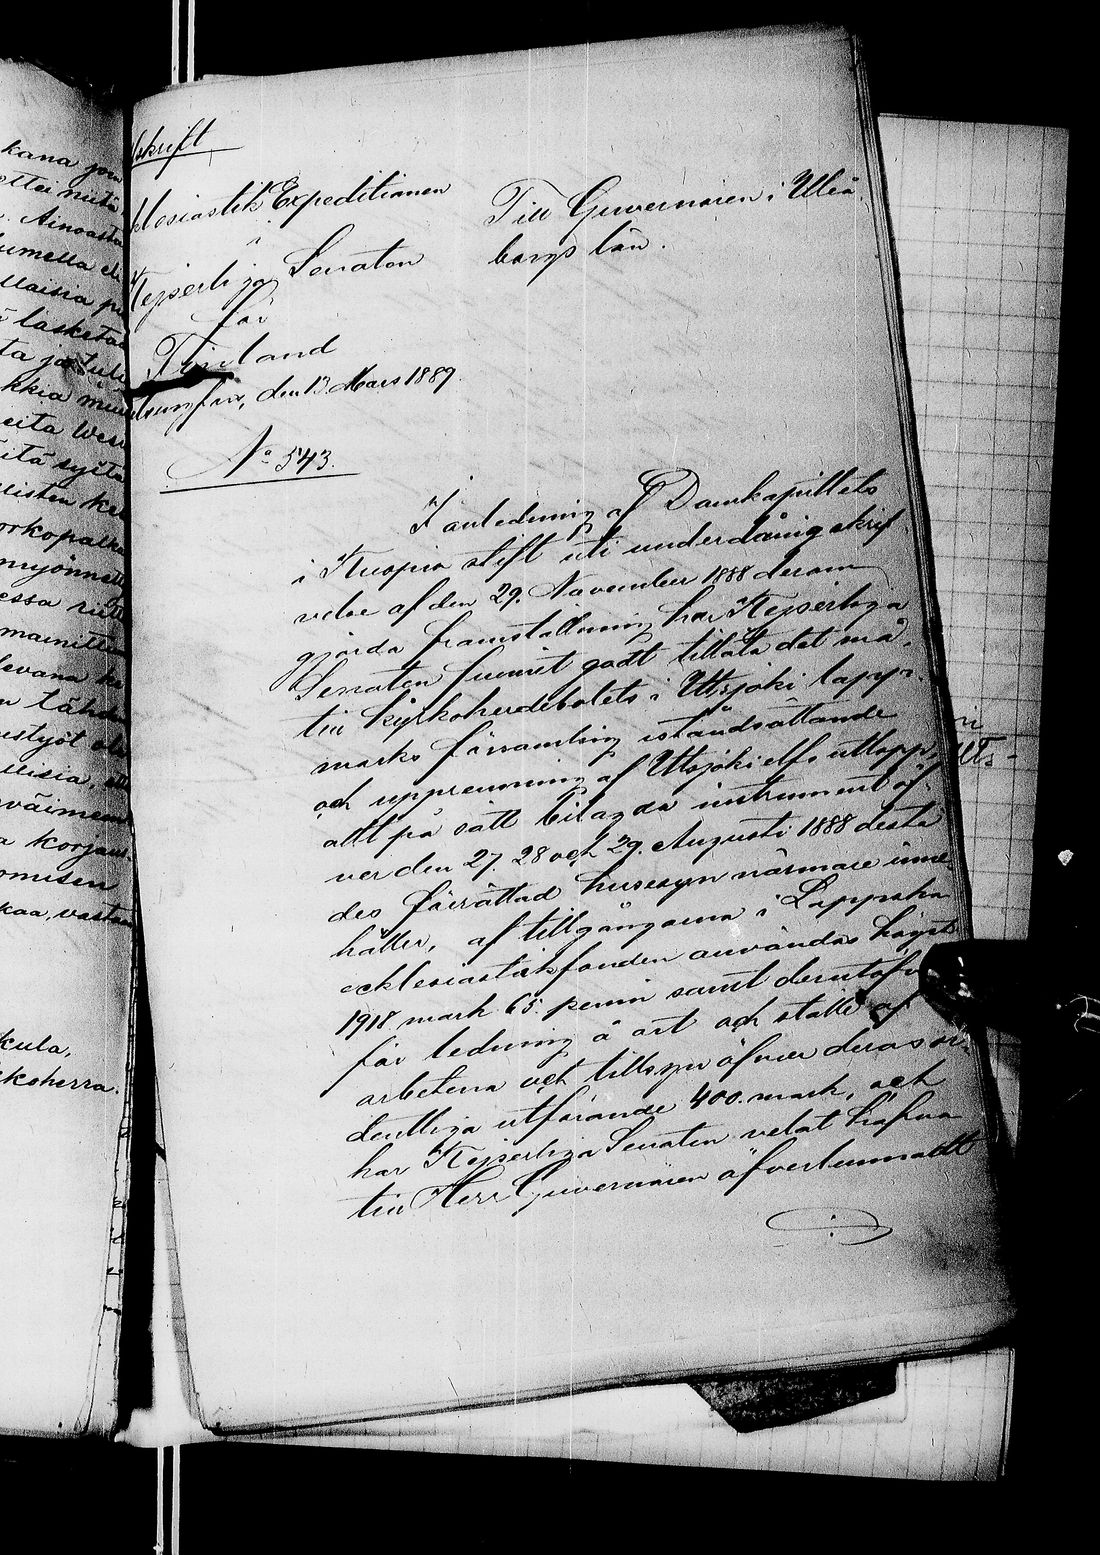 kana jon
etter niitä
. Ainoasta
umella
llaisia
ä lasketaa
ta ja tule
kkia
eita Wesi
itä systä
llisten
orkopalka
myönnet
essa
mainittu
levana
n tähde
estyöt
llisia,
väimen
a korjau
omisen
kaa, vastaa
kula,
koherra.
fskrift
klesiastik Expeditionen
i
Kejserliga Senaten
för
Finland
elsingfors, den 13 Mars 1889.
No 543.
Till Guvernören i Uleå
borgs län.
I anledning af Domkapitlets
i Kuopio stift uti underdånig skrif
velse af den 29. November 1888 derom
gjorda framställning har Kejserliga
Senaten funnit godt tillåta det må,
till kyrkoherdebolets i Utsjoki lapp-
marks församling iståndsättande
och upprensning af Utsjoki elfs utlopp,
allt på sätt bilagda instrument öf-
ver den 27. 28 och 29. Augusti 1888 derstä
des förrättad husesyn närmare inne
håller, af tillgångarna i Lappska
ecklesiastikfonden användas högst
1918 mark 65. penni samt derutöfv
för ledning å ort och ställe af
arbetena och tillsyn öfver deras or-
dentliga utförande 400. mark, och
har Kejserliga Senaten velat häfva
till Herr Guvernören öfverlemnadt